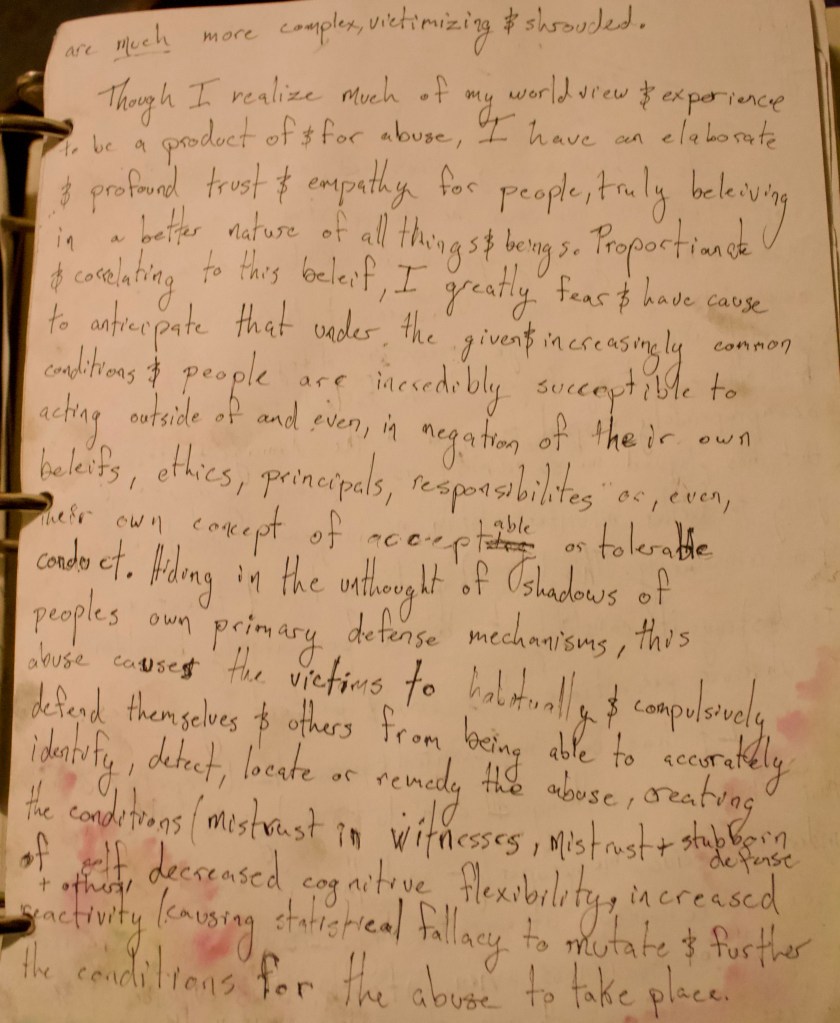 are much more complex, victimizing & shrouded.
Though I realize much of my world view & experience
to be a product of & for abuse, I have an elaborate
& profound trust & empathy for people, truly beleiving
in a better nature of all things & beings. Proportianate
& correlating to this beleif, I greatly fear & have cause
to anticipate that under the given & increasingly common
conditions & people are incredibly succeptible to
acting outside of and even, in negation of their own
beleifs, ethics, principals, responsibilites or, even,
their own concept of acceptable or tolerable
conduct. Hiding in the unthought of shadows of
peoples own primary defense mechanisms, this
abuse causes the victims to habitually & compulsively
defend themselves & others from being able to accurately
identify, detect, locate or remedy the abuse, creating
the conditions (mistrust in witnesses, mistrust + stubborn defense
of self + others, decreased cognitive flexibility, increased
reactivity (causing statistical fallacy to mutate & further
the conditions for the abuse to take place.